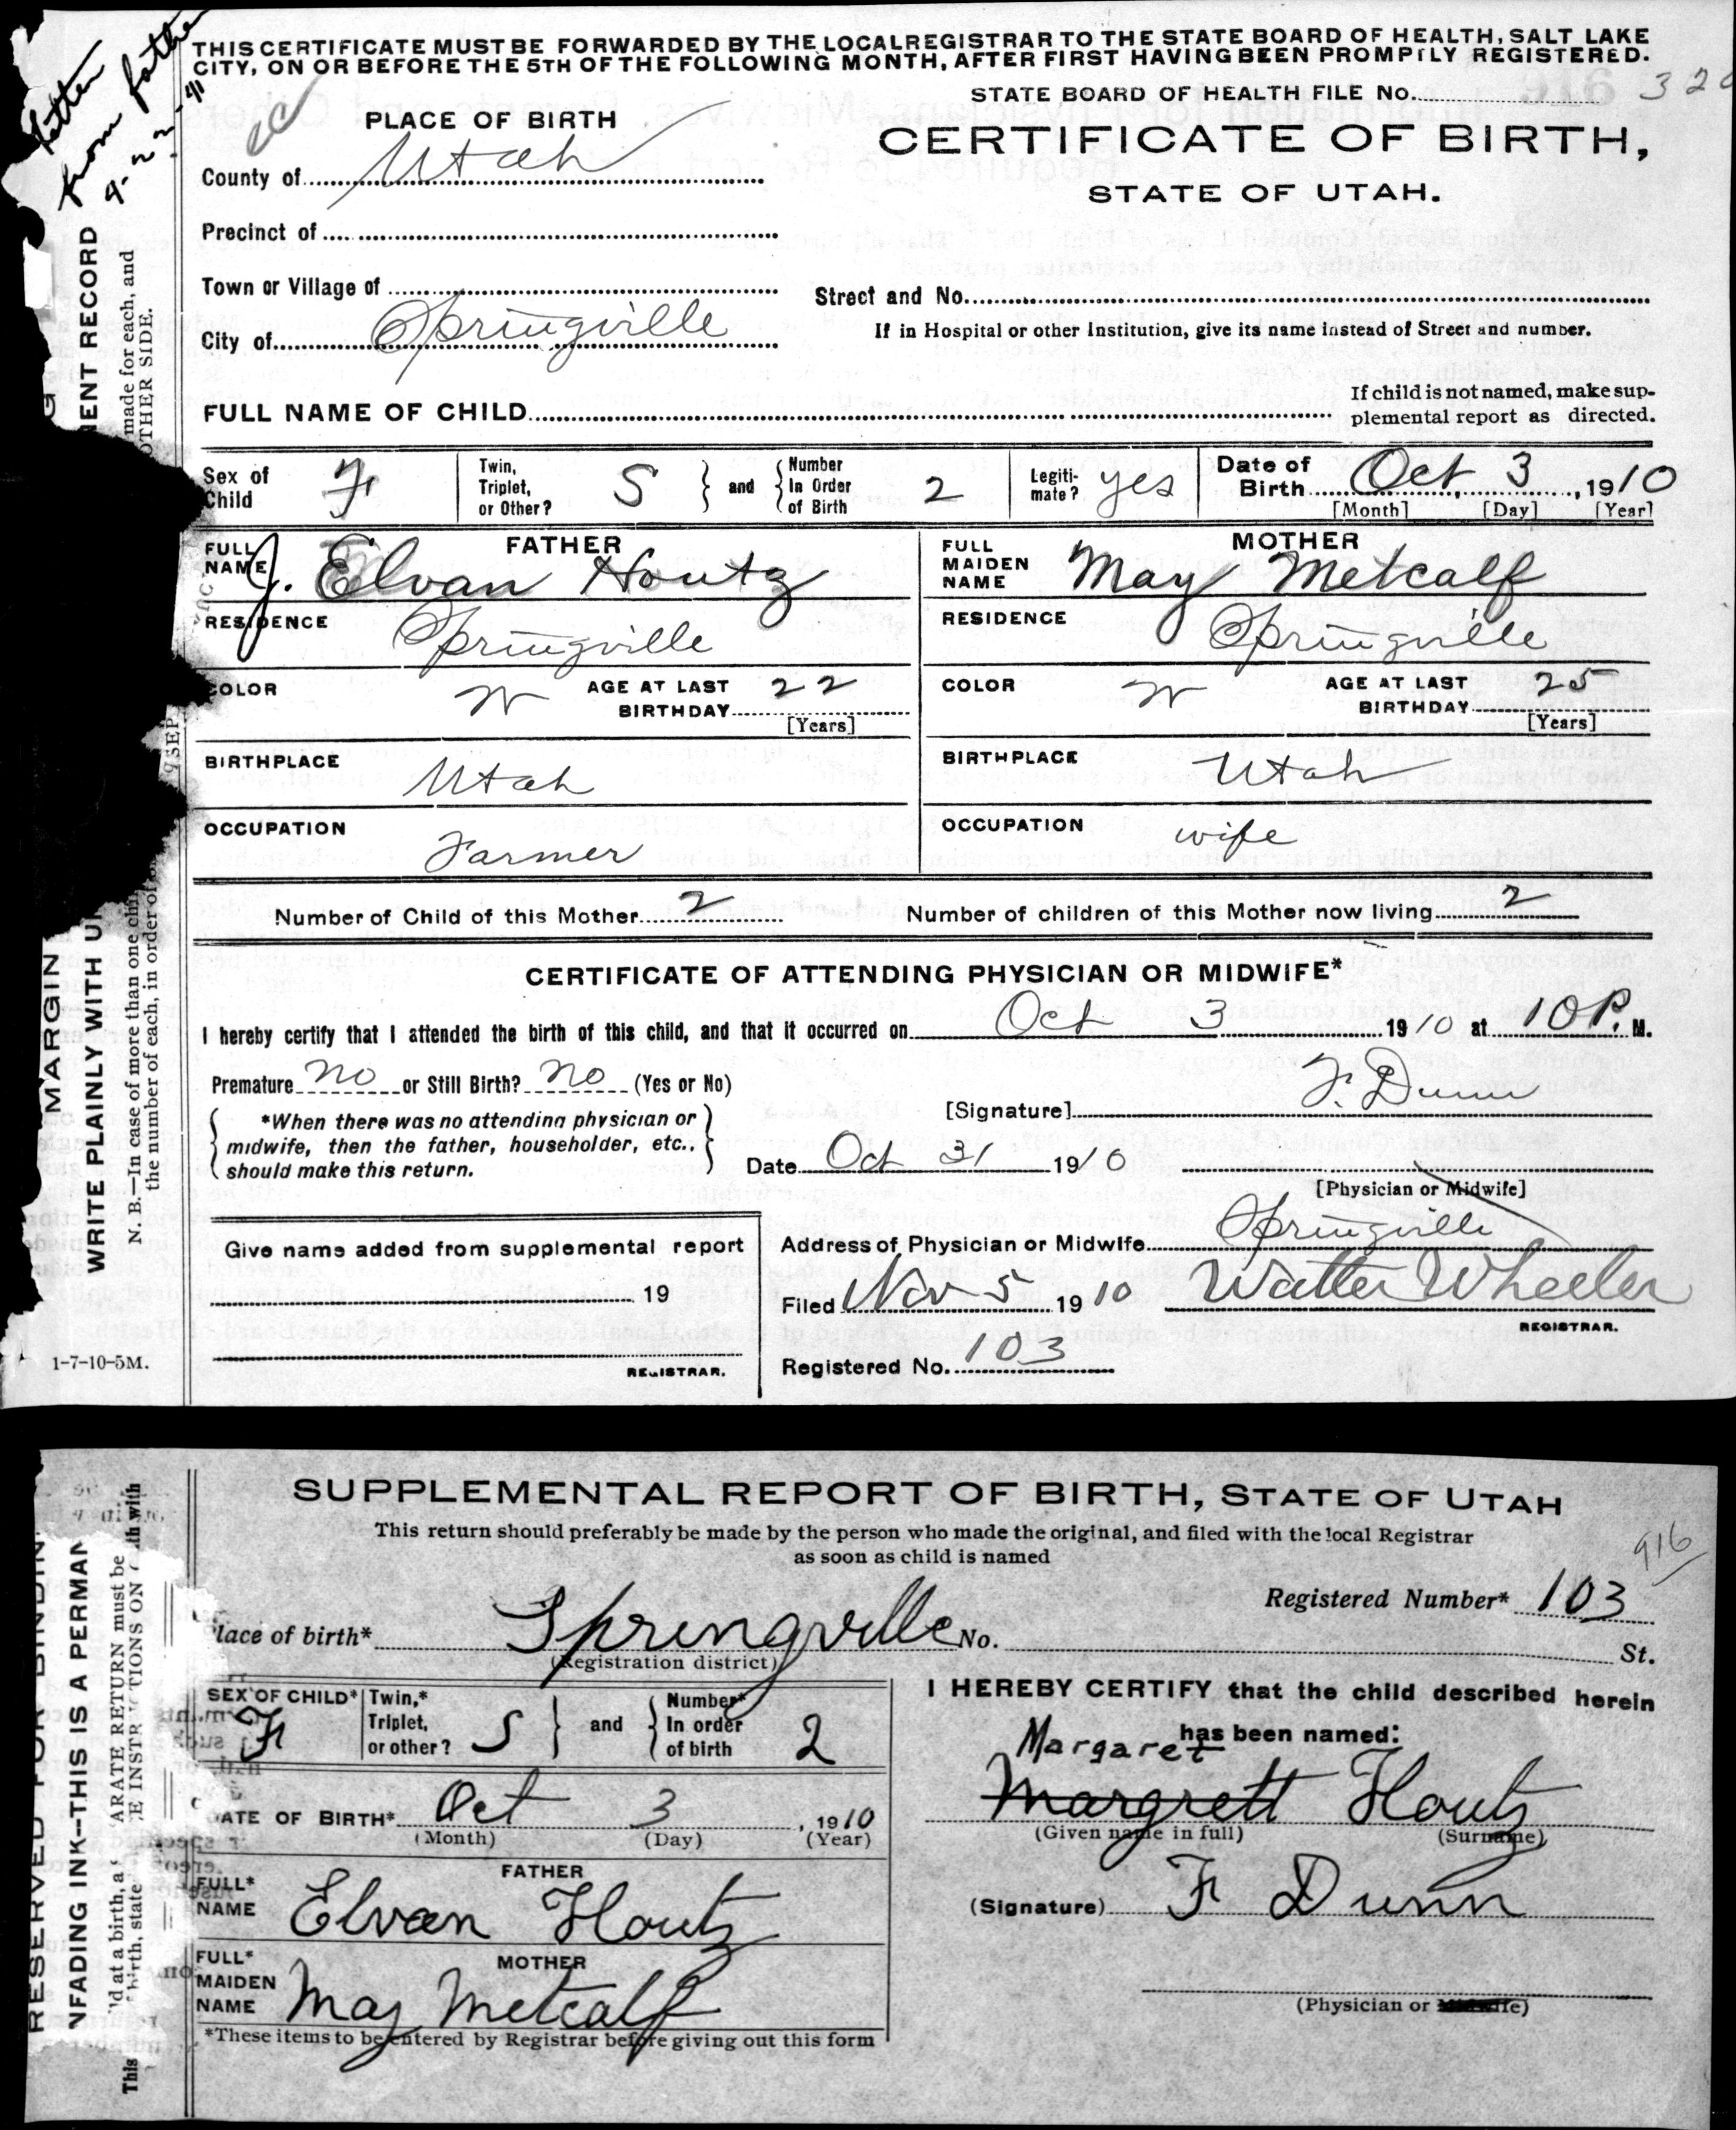 Letter
from father
9-22-41
THIS CERTIFICATE MUST BE FORWARDED BY THE LOCAL REGISTRAR TO THE STATE BOARD OF HEALTH, SALT LAKE
CITY, ON OR BEFORE THE 5TH OF THE FOLLOWING MONTH, AFTER FIRST HAVING BEEN PROMPTLY REGISTERED.
STATE BOARD OF HEALTH FILE No.
PLACE OF BIRTH
CERTIFICATE OF BIRTH,
STATE OF UTAH.
County of Utah
Precinct of
Town or Village of
Street and No.
City of Springville
If in Hospital or other Institution, give its name instead of Street and number.
FULL NAME OF CHILD
If child is not named, make sup-
plemental report as directed.
Sex of Child F
Twin, Triplet, or Other? S and Number In Order of Birth 2
Legiti-mate? yes
Date of Birth Oct 3, 1910
[Month] [Day] [Year]
FATHER
FULL NAME J. Elvan Houtz
MOTHER
FULL MAIDEN NAME May Metcalf
RESIDENCE Springville
RESIDENCE Springville
COLOR W AGE AT LAST BIRTHDAY 22
[Years]
COLOR W AGE AT LAST BIRTHDAY 25
[Years]
BIRTHPLACE Utah
BIRTHPLACE Utah
OCCUPATION Farmer
OCCUPATION wife
Number of Child of this Mother 2 Number of children of this Mother now living 2
CERTIFICATE OF ATTENDING PHYSICIAN OR MIDWIFE*
I hereby certify that I attended the birth of this child, and that it occurred on Oct 3 1910 at 10 P. M.
Premature no or Still Birth? no (Yes or No)
*When there was no attending physician or
midwife, then the father, householder, etc.,
should make this return.
[Signature] F. Dunn
Date Oct 31 1910
[Physician or Midwife]
Give name added from supplemental report
19
REGISTRAR.
Address of Physician or Midwife Springville
Filed Nov 5 1910 Walter Wheeler
REGISTRAR.
Registered No. 103
1-7-10-5M.
MARGIN
ENT RECORD
WRITE PLAINLY WITH U
N. B.—In case of more than one chi
made for each, and
the number of each, in order of
OTHER SIDE.
SUPPLEMENTAL REPORT OF BIRTH, STATE OF UTAH
This return should preferably be made by the person who made the original, and filed with the local Registrar
as soon as child is named
916
Registered Number* 103
lace of birth* Springville No. St.
(Registration district)
SEX OF CHILD* F
Twin,* Triplet, or other? S and Number* In order of birth 2
I HEREBY CERTIFY that the child described herein
has been named:
Margaret
Margrett Houtz
(Given name in full) (Surname)
ATE OF BIRTH* Oct 3, 1910
(Month) (Day) (Year)
FATHER
FULL* NAME Elvan Houtz
(Signature) F Dunn
MOTHER
FULL* MAIDEN NAME May Metcalf
(Physician or Midwife)
*These items to be entered by Registrar before giving out this form
RESERVED FOR BINDIN
NFADING INK—THIS IS A PERMAN
ARATE RETURN must be
E INSTR TIONS ON
th with
d at a birth, a
birth, state
This